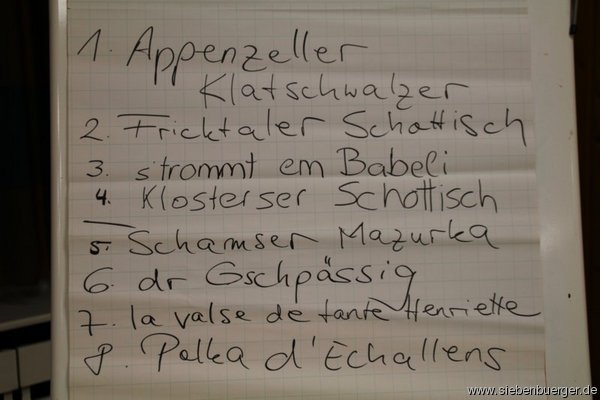 1. Appenzeller
Klatschwalzer
2. Fricktaler Schottisch
3. s'trommt em Babeli
4. Klosterser Schottisch
5. Schamser Mazurka
6. dr Gschpässig
7. la valse de tante Henriette
8. Polka d'Echallens
www.siebenbuerger.de